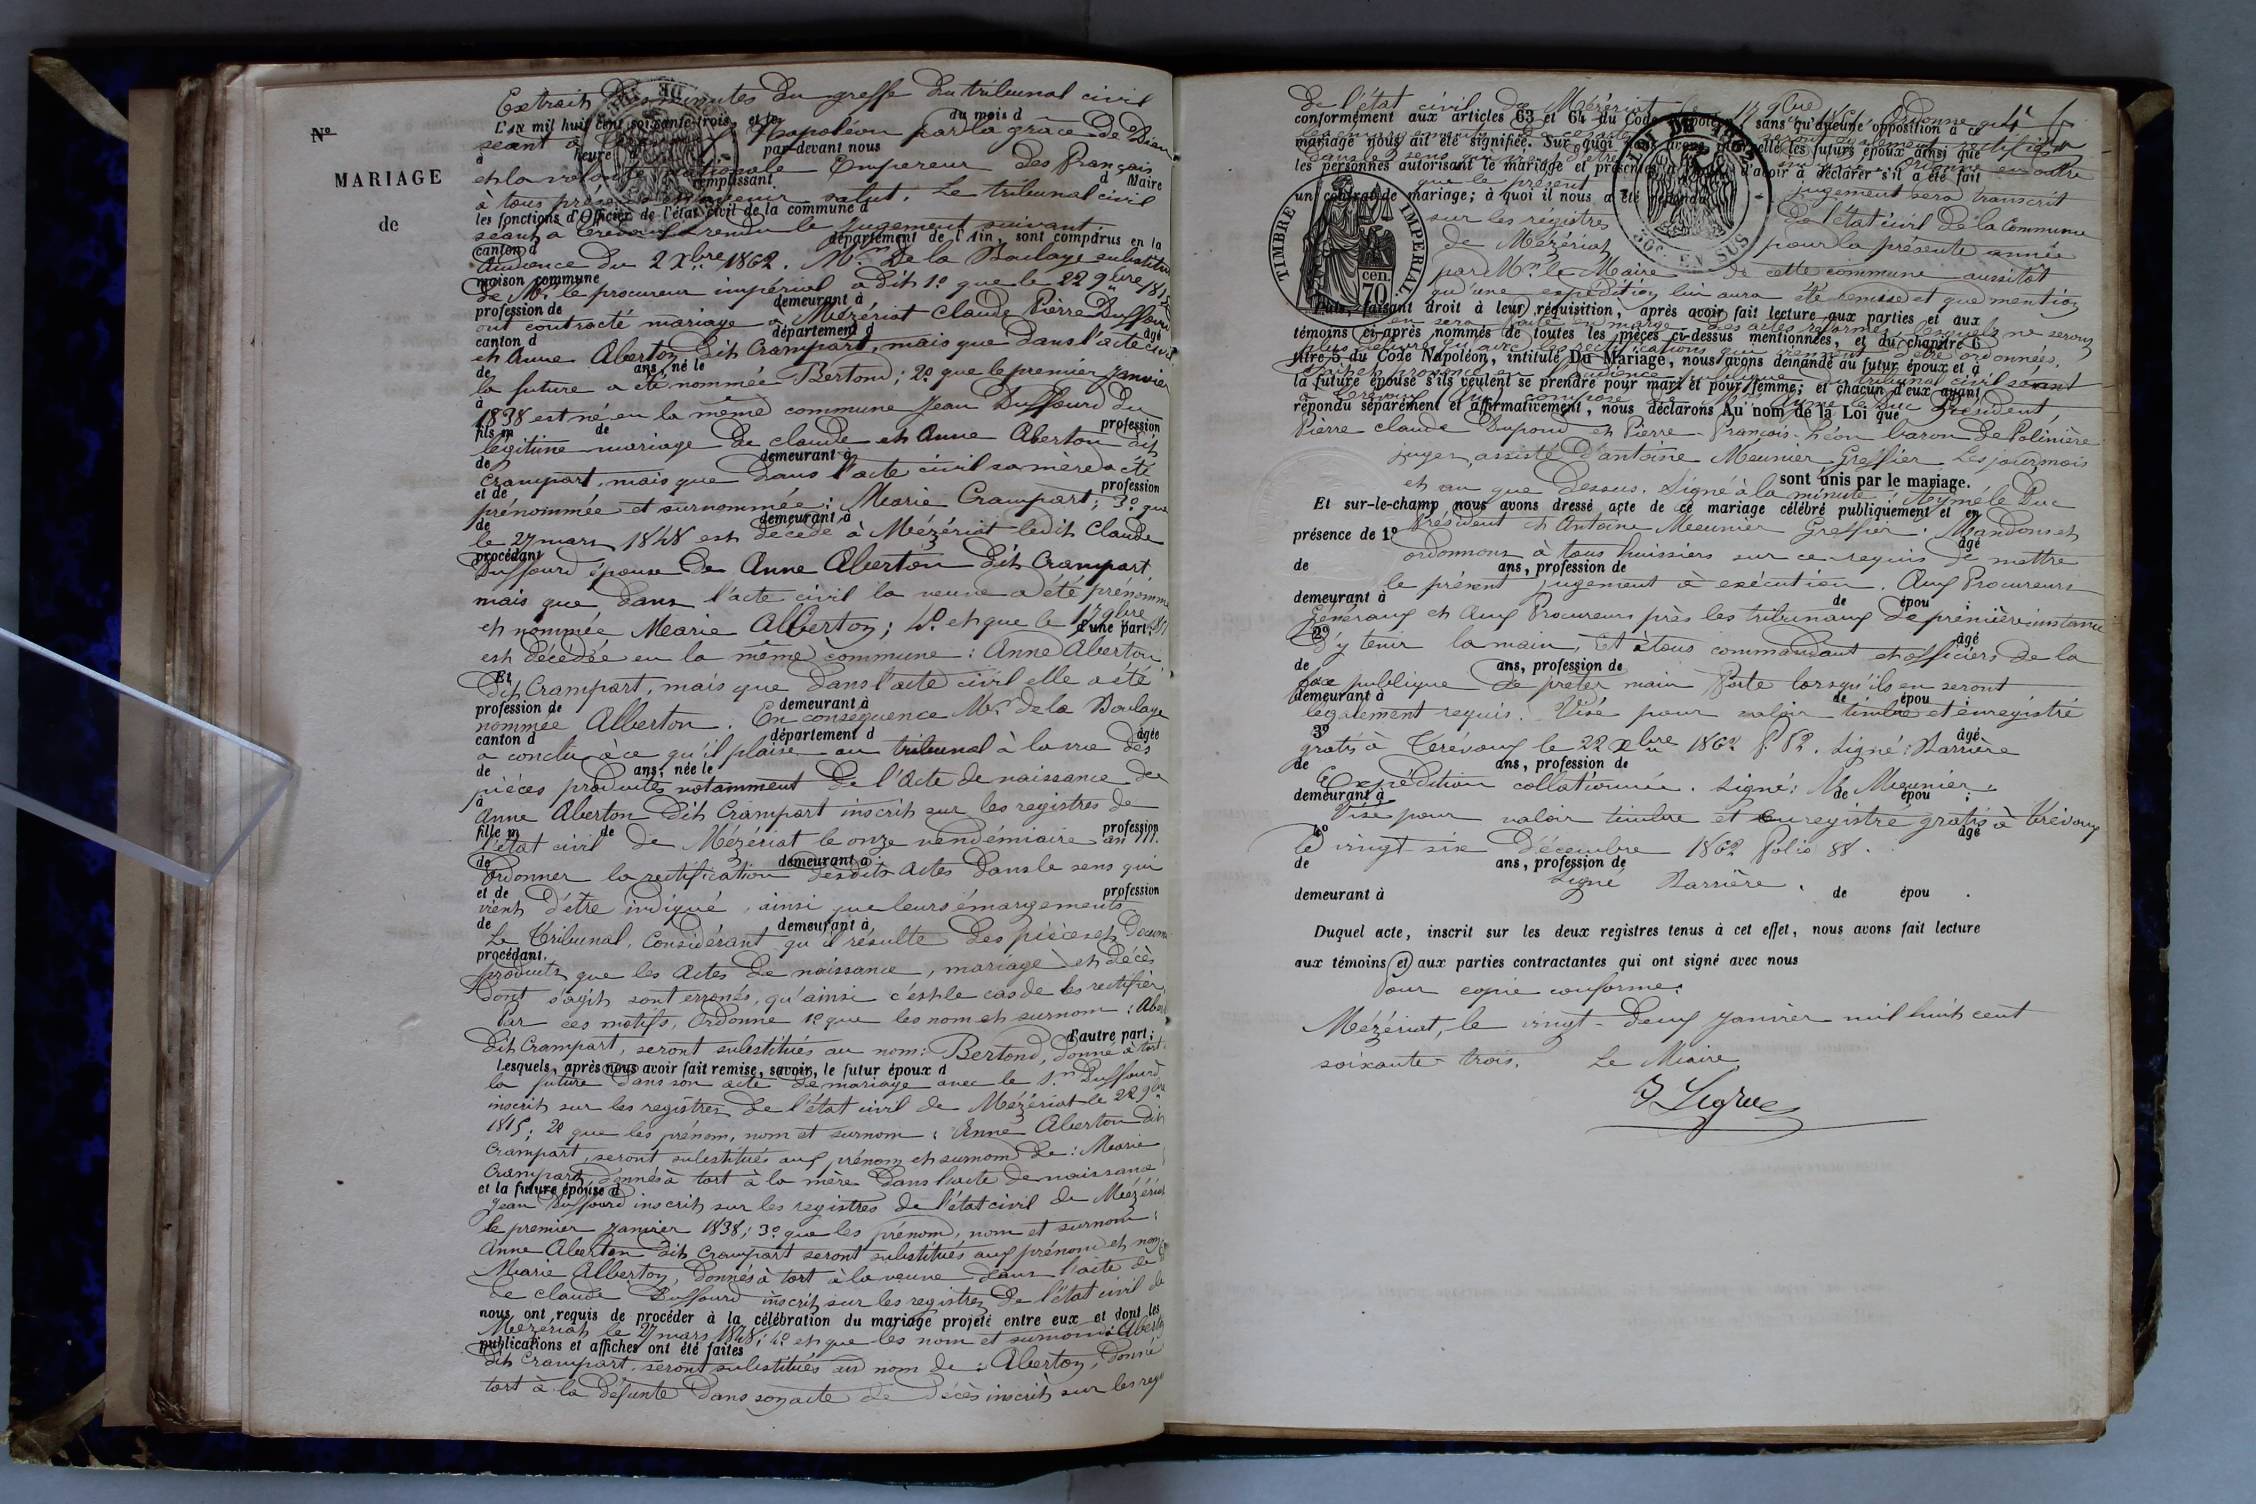 Extrait des minutes du greffe du tribunal civil
L'an mil huit cent soixante-trois et le du mois d
séant à Napoléon par la grâce de Dieu
à heure par-devant nous
et la volonté nationale Empereur des Français
remplissant d Maire
à tous présents et à venir salut. Le tribunal civil
les fonctions d'Officier de l'état civil de la commune d
séant à Trévoux a rendu le jugement suivant
canton d département de l'Ain, sont comparus en la
Audience du 2 Xbre 1862. Mr. De la Boulaye substitut
maison commune
de Mr. le procureur impérial a dit 1º que le 22 9bre 1815
profession de demeurant à
ont contracté mariage à Mézériat Claude Pierre Duffourd
canton d département d âgé
et Anne Aberton dit Crampart, mais que dans l'acte civil
de ans, né le
la future a été nommée Bertond; 2º que le premier Janvier
à
1838 est né en la même commune Jean Duffourd du
fils m de profession
légitime mariage de Claude et Anne Aberton dit
de demeurant à
Crampart, mais que dans l'acte civil sa mère a été
et de profession
prénommée et surnommée: Marie Crampart; 3º que
de demeurant à
le 27 mars 1848 est décédé à Mézériat ledit Claude
procédant
Duffourd époux de Anne Aberton dit Crampart
mais que dans l'acte civil la veuve a été prénommée
et nommée Marie Alberton; 4º et que le 17 9bre
d'une part;
est décédée en la même commune: Anne Aberton
Et
dit Crampart, mais que dans l'acte civil elle a été
profession de demeurant à
nommée Alberton. En conséquence Mr. de la Boulaye
canton d département d âgée
a conclu à ce qu'il plaise au tribunal à la vue des
de ans, née le
pièces produites notamment de l'acte de naissance de
à
Anne Aberton dit Crampart inscrit sur les registres de
fille m de profession
l'état civil de Mézériat le onze vendémiaire an III.
de demeurant à
Ordonner la rectification desdits actes dans le sens qui
et de profession
vient d'être indiqué, ainsi que leurs émargements
de demeurant à
Le Tribunal, Considérant qu'il résulte des pièces et
procédant.
produits que les actes de naissance, mariage et décès
dont s'agit sont erronés, qu'ainsi c'est le cas de les rectifier
Par ces motifs, Ordonne 1º que les nom et surnom:
d'autre part;
dit Crampart, seront substitués au nom: Bertond, donné à tort
Lesquels, après nous avoir fait remise, savoir, le futur époux d
la future dans son acte de mariage avec le Sr. Duffourd
inscrit sur les registres de l'état civil de Mézériat le 22 9bre
1815; 2º que les prénom, nom et surnom: Anne Aberton dit
Crampart, seront substitués aux prénom et surnom de: Marie
Crampart, donnés à tort à la mère dans l'acte de naissance
et la future épouse d
Jean Duffourd inscrit sur les registres de l'état civil de Mézériat
le premier Janvier 1838; 3º que les prénom, nom et surnom:
Anne Aberton dit Crampart seront substitués aux prénom et nom
Marie Alberton, donnés à tort à la veuve dans l'acte de
de Claude Duffourd inscrit sur les registres de l'état civil de
nous ont requis de procéder à la célébration du mariage projeté entre eux et dont les
Mézériat le 27 mars 1848; 4º et que les nom et surnom:
publications et affiches ont été faites
dit Crampart, seront substitués au nom de: Alberton, donné
tort à la défunte dans son acte de décès inscrit sur les
Nº
MARIAGE
de
de l'état civil de Mézériat le 17 9bre Ordonne
conformément aux articles 63 et 64 du Code Napoléon, sans qu'aucune opposition à ce
mariage nous ait été signifiée. Sur quoi nous avons interpellé les futurs époux ainsi que
les personnes autorisant le mariage et présentes à d'avoir à déclarer s'il a été fait
que le présent jugement sera transcrit
un contrat de mariage; à quoi il nous a été répondu
sur les registres de l'état civil de la Commune
de Mézériat pour la présente année
par Mr. le Maire de cette commune aussitôt
qu'une expédition lui aura été remise et que mention
Puis, faisant droit à leur réquisition, après avoir fait lecture aux parties et aux
en sera faite en marge des actes réformés, lesquels ne seront
témoins ci-après nommés de toutes les pièces ci-dessus mentionnées, et du chapitre 6
plus délivrés qu'avec les rectifications qui viennent d'être ordonnées.
titre 5 du Code Napoléon, intitulé Du Mariage, nous avons demandé au futur époux et à
la future épouse s'ils veulent se prendre pour mari et pour femme; et chacun d'eux ayant
répondu séparément et affirmativement, nous déclarons Au nom de la Loi que
Pierre Claude Dupond et Pierre-François-Léon baron de Polinière
juges, assisté d'Antoine Meunier Greffier les jour, mois
sont unis par le mariage.
et an que dessus. Signé à la minute: Aymé le Duc
Et sur-le-champ nous avons dressé acte de ce mariage célébré publiquement et en
Président et Antoine Meunier Greffier. Mandons et
présence de 1º âgé
ordonnons à tous huissiers sur ce requis de mettre
de ans, profession de
le présent jugement à exécution. Aux Procureurs
demeurant à de épou ;
Généraux et Aux Procureurs près les tribunaux de première instance
2º âgé
d'y tenir la main, et à tous commandant et officiers de la
de ans, profession de
force publique de prêter main forte lorsqu'ils en seront
demeurant à de épou ;
légalement requis. Visé pour valoir timbre et enregistré
3º âgé
gratis à Trévoux le 22 Xbre 1862 fº 82. Signé: Barrière
de ans, profession de
Expédition collationnée. Signé: Meunier.
demeurant à de épou ;
Visé pour valoir timbre et enregistré gratis à Trévoux
4º âgé
le vingt-six Décembre 1862 folio 88.
de ans, profession de
Signé Barrière.
demeurant à de épou .
Duquel acte, inscrit sur les deux registres tenus à cet effet, nous avons fait lecture
aux témoins et aux parties contractantes qui ont signé avec nous
Pour copie conforme.
Mézériat, le vingt-deux Janvier mil huit cent
soixante-trois. Le Maire
TIMBRE IMPERIAL
70 cen.
LOI DE 1862
EN SUS